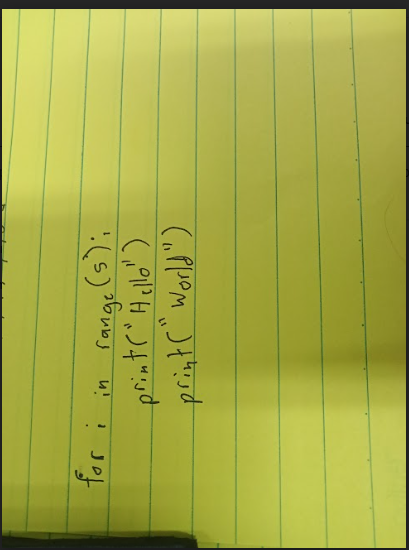 for i in range(5):
print("Hello")
print("World")